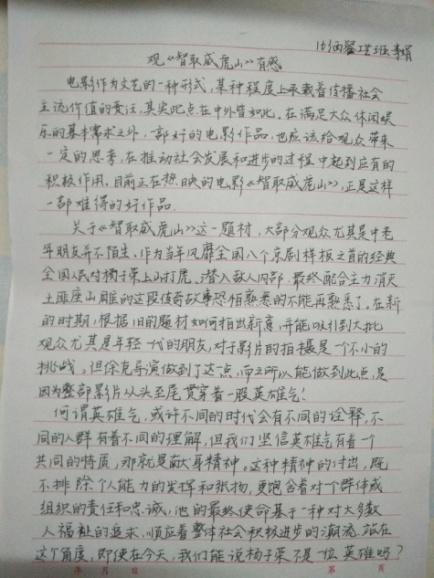 观《智取威虎山》有感
电影作为文艺的一种形式，某种程度上承载着传播社会
主流价值的责任，其实此点在中外皆如此，在满足大众休闲娱
乐的基本需求之外，一部好的电影作品，也应该给观众带来
一定的思考，在推动社会发展和进步的过程中起到应有的
积极作用，目前正在热映的电影《智取威虎山》，正是这样
一部难得的好作品.
关于《智取威虎山》这一题材，大部分观众尤其是中老
年朋友并不陌生，作为当年风靡全国八个京剧样板之首的经典
全国人民对杨子荣上山打虎，潜入敌人内部，最终配合主力消灭
土匪座山雕的这段传奇故事恐怕熟悉的不能再熟悉了，在新
的时期，根据旧的题材如何拍出新意，并能吸引到大批
观众尤其是年轻一代的朋友，对于影片的拍摄是一个不小的
挑战，但徐克导演做到了这一点，而之所以能做到此点，是
因为整部影片从头至尾贯穿着一股英雄气！
何谓英雄气，或许不同的时代会有不同的诠释，不
同的人群有着不同的理解，但我们坚信英雄气有着一个
共同的特质，那就是献身精神，这种精神的付出，既
不排除个人能力的发挥和张扬，更饱含着对个群体或
组织的责任和忠诚，他的最终使命基于一种对大多数
人福祉的追求，顺应着整体社会积极进步的潮流，站在
这个角度，即使在今天，我们能说杨子荣不是一位英雄吗？
年 月 日 第 页